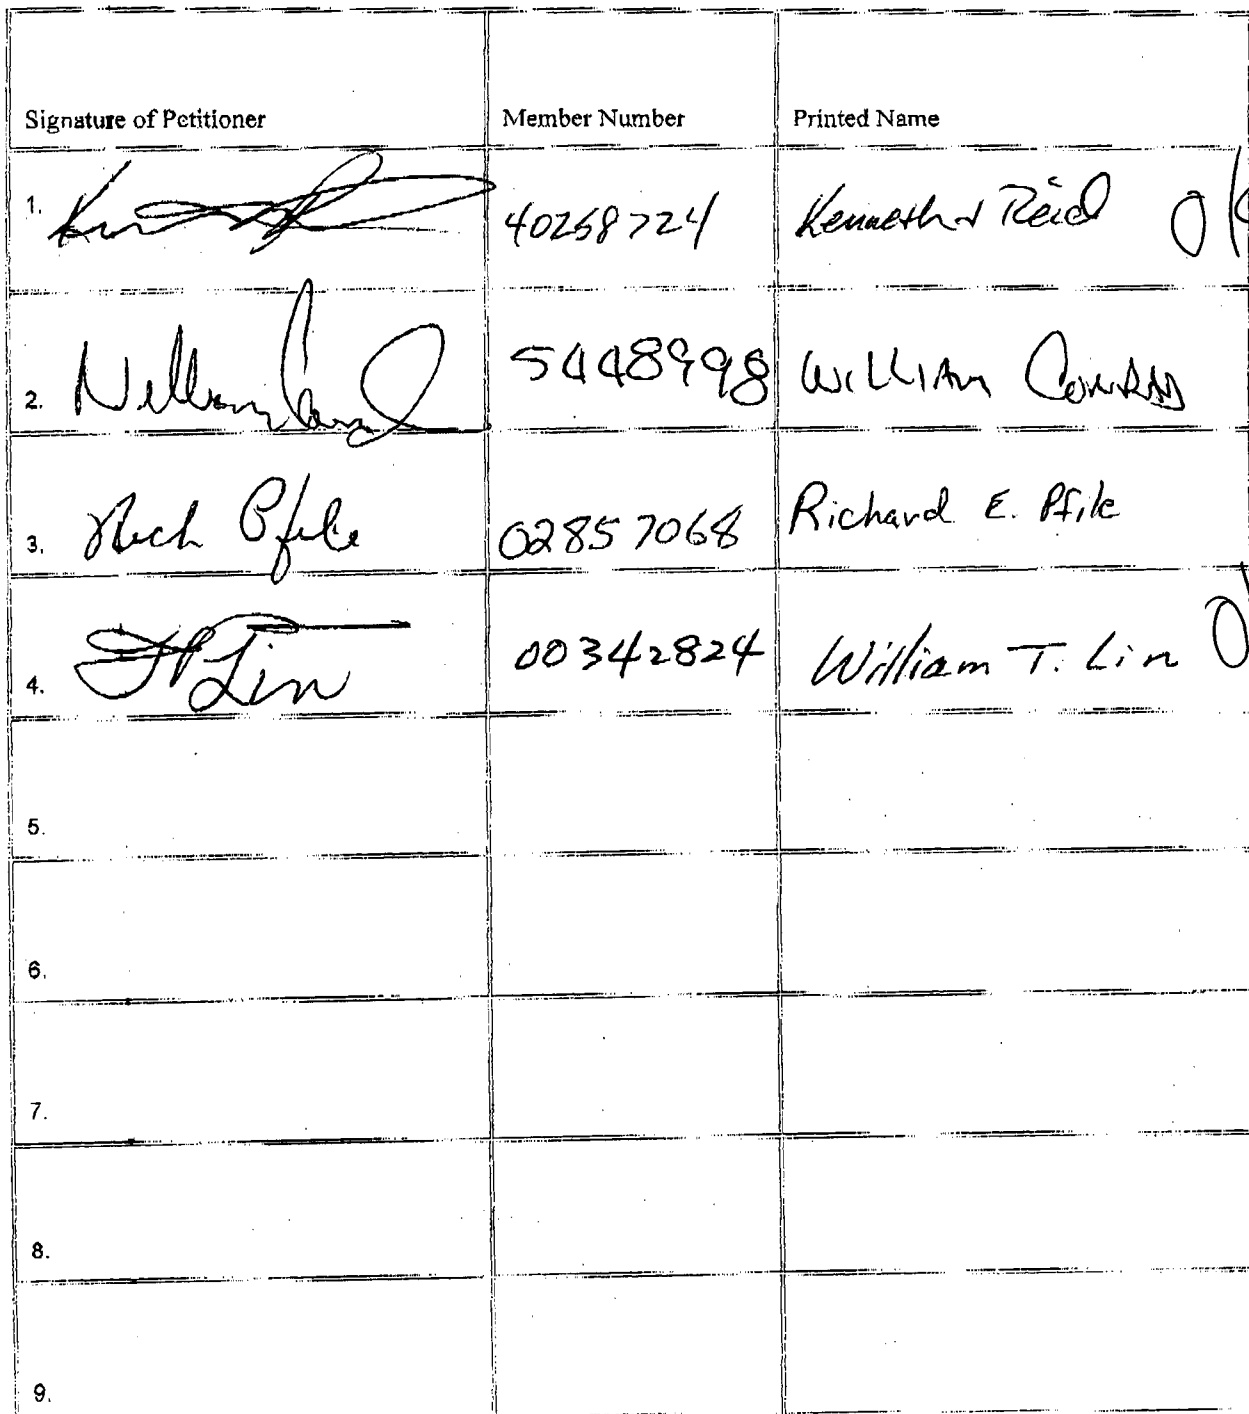 Signature of Petitioner Member Number Printed Name
1. 40268724 Reid
2. 5448998 William Conrad
3. Rich Pfile 02857068 Richard E. Pfile
4. Lin 00342824 William T. Lin
5.
6.
7.
8.
9.